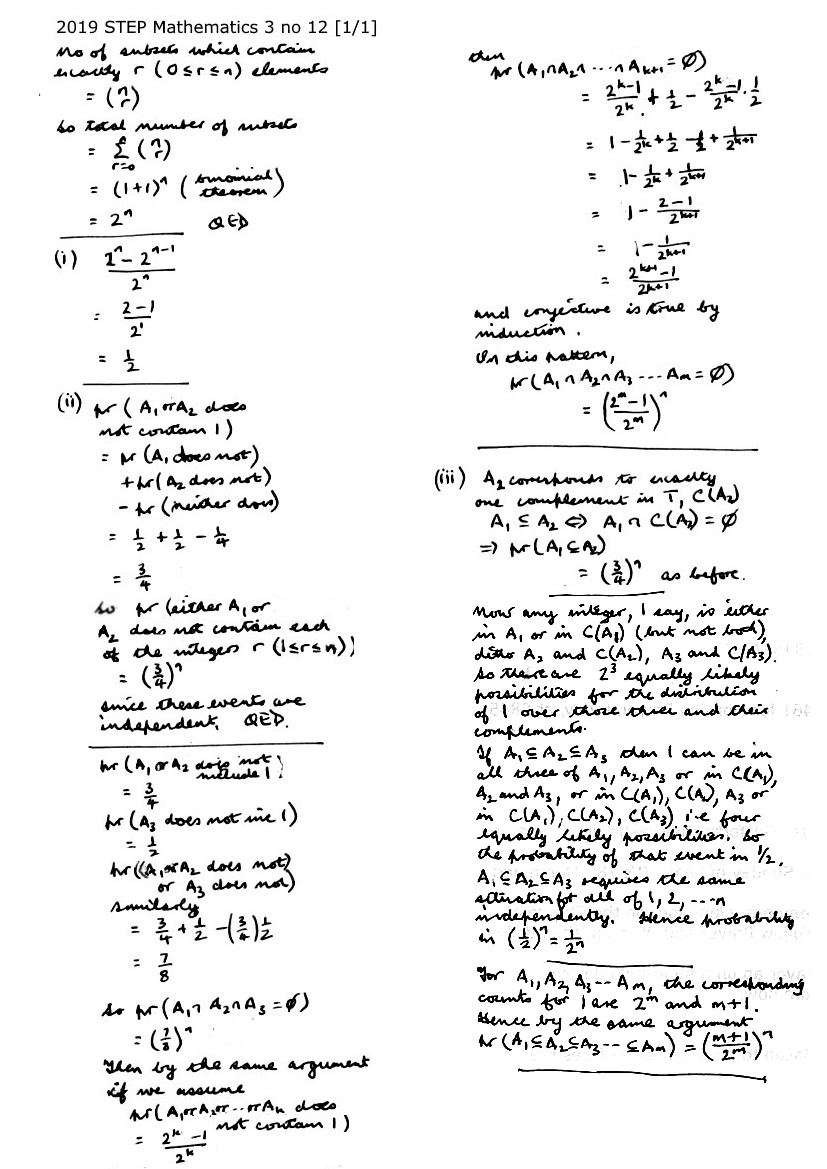 2019 STEP Mathematics 3 no 12 [1/1]
No of subsets which contain
exactly r (0 ≤ r ≤ n) elements
= (n r)
So total number of subsets
= Σ_{r=0}^{n} (n r)
= (1+1)^n (binomial theorem)
= 2^n QED
(i) (2^n − 2^{n−1})/2^n
= (2−1)/2^1
= 1/2
(ii) pr (A₁ or A₂ does
not contain 1)
= pr (A₁ does not)
+ pr (A₂ does not)
− pr (neither does)
= 1/2 + 1/2 − 1/4
= 3/4
so pr (either A₁ or
A₂ does not contain each
of the integers r (1≤r≤n))
= (3/4)^n
since these events are
independent. QED.
pr (A₁ or A₂ does not include 1)
= 3/4
pr (A₃ does not inc 1)
= 1/2
pr ((A₁ or A₂ does not)
or A₃ does not)
similarly
= 3/4 + 1/2 − (3/4)1/2
= 7/8
So pr (A₁ ∩ A₂ ∩ A₃ = ∅)
= (7/8)^n
Then by the same argument
if we assume
pr (A₁ or A₂ or -- or A_k does
not contain 1)
= (2^k − 1)/2^k
then
pr (A₁ ∩ A₂ ∩ --- ∩ A_{k+1} = ∅)
= (2^k−1)/2^k + 1/2 − (2^k−1)/2^k · 1/2
= 1 − 1/2^k + 1/2 − 1/2 + 1/2^{k+1}
= 1 − 1/2^k + 1/2^{k+1}
= 1 − (2−1)/2^{k+1}
= 1 − 1/2^{k+1}
= (2^{k+1} − 1)/2^{k+1}
and conjective is true by
induction.
In this pattern,
pr (A₁ ∩ A₂ ∩ A₃ --- A_m = ∅)
= ((2^m − 1)/2^m)^n
(iii) A₂ corresponds to exactly
one complement in T, C(A₂)
A₁ ⊆ A₂ ⇔ A₁ ∩ C(A₂) = ∅
⇒ pr (A₁ ⊆ A₂)
= (3/4)^n as before.
Now any integer, 1 say, is either
in A₁ or in C(A₁) (but not both),
ditto A₂ and C(A₂), A₃ and C(A₃).
So there are 2³ equally likely
possibilities for the distribution
of 1 over those three and their
complements.
If A₁ ⊆ A₂ ⊆ A₃ then 1 can be in
all three of A₁, A₂, A₃ or in C(A₁),
A₂ and A₃, or in C(A₁), C(A₂), A₃ or
in C(A₁), C(A₂), C(A₃) i.e four
equally likely possibilities. So
the probability of that event is 1/2.
A₁ ⊆ A₂ ⊆ A₃ requires the same
situation for all of 1, 2, ---n
independently. Hence probability
is (1/2)^n = 1/2^n
For A₁, A₂, A₃ -- A_m, the corresponding
counts for 1 are 2^m and m+1.
Hence by the same argument
pr (A₁ ⊆ A₂ ⊆ A₃ -- ⊆ A_m) = ((m+1)/2^m)^n